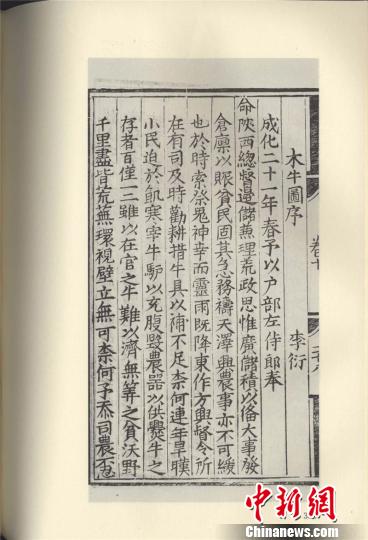 卷十
木牛圖序
李衍
成化二十一年春予以户部左侍郎奉
命陝西總督邊儲兼理荒政思惟廣儲積以俻大事發
倉廩以賑貧民固其急務禱天澤興農事亦不可緩
也於時索祭鬼神幸而靈雨既降東作方興督令所
在有司及時勸耕措牛具以補不足柰何連年旱暵
小民迫於飢寒宰牛馿以充腹毀農器以供爨牛之
存者百僅一二雖以在官之牛難以濟無筭之貧沃野
千里盡皆荒蕪環視壁立無可柰何予忝司農
中新网
www.chinanews.com